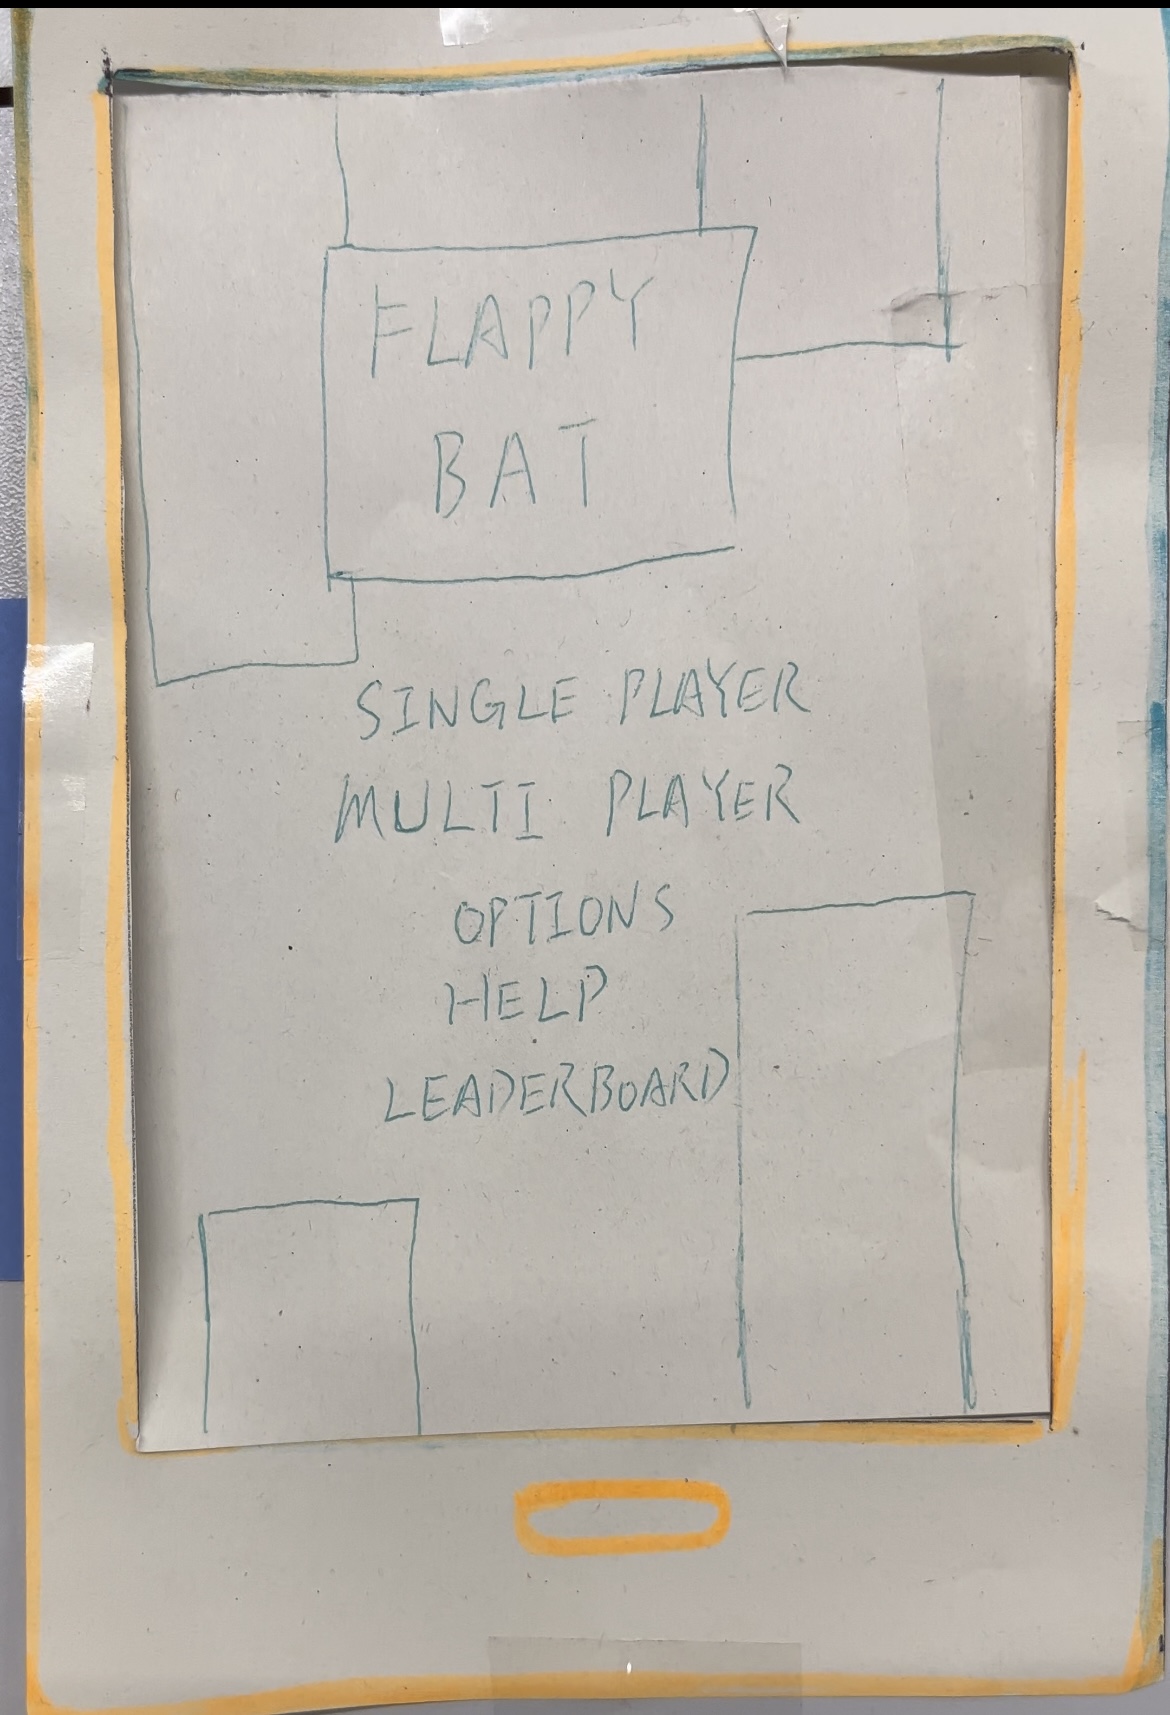 FLAPPY
BAT
SINGLE PLAYER
MULTI PLAYER
OPTIONS
HELP
LEADERBOARD